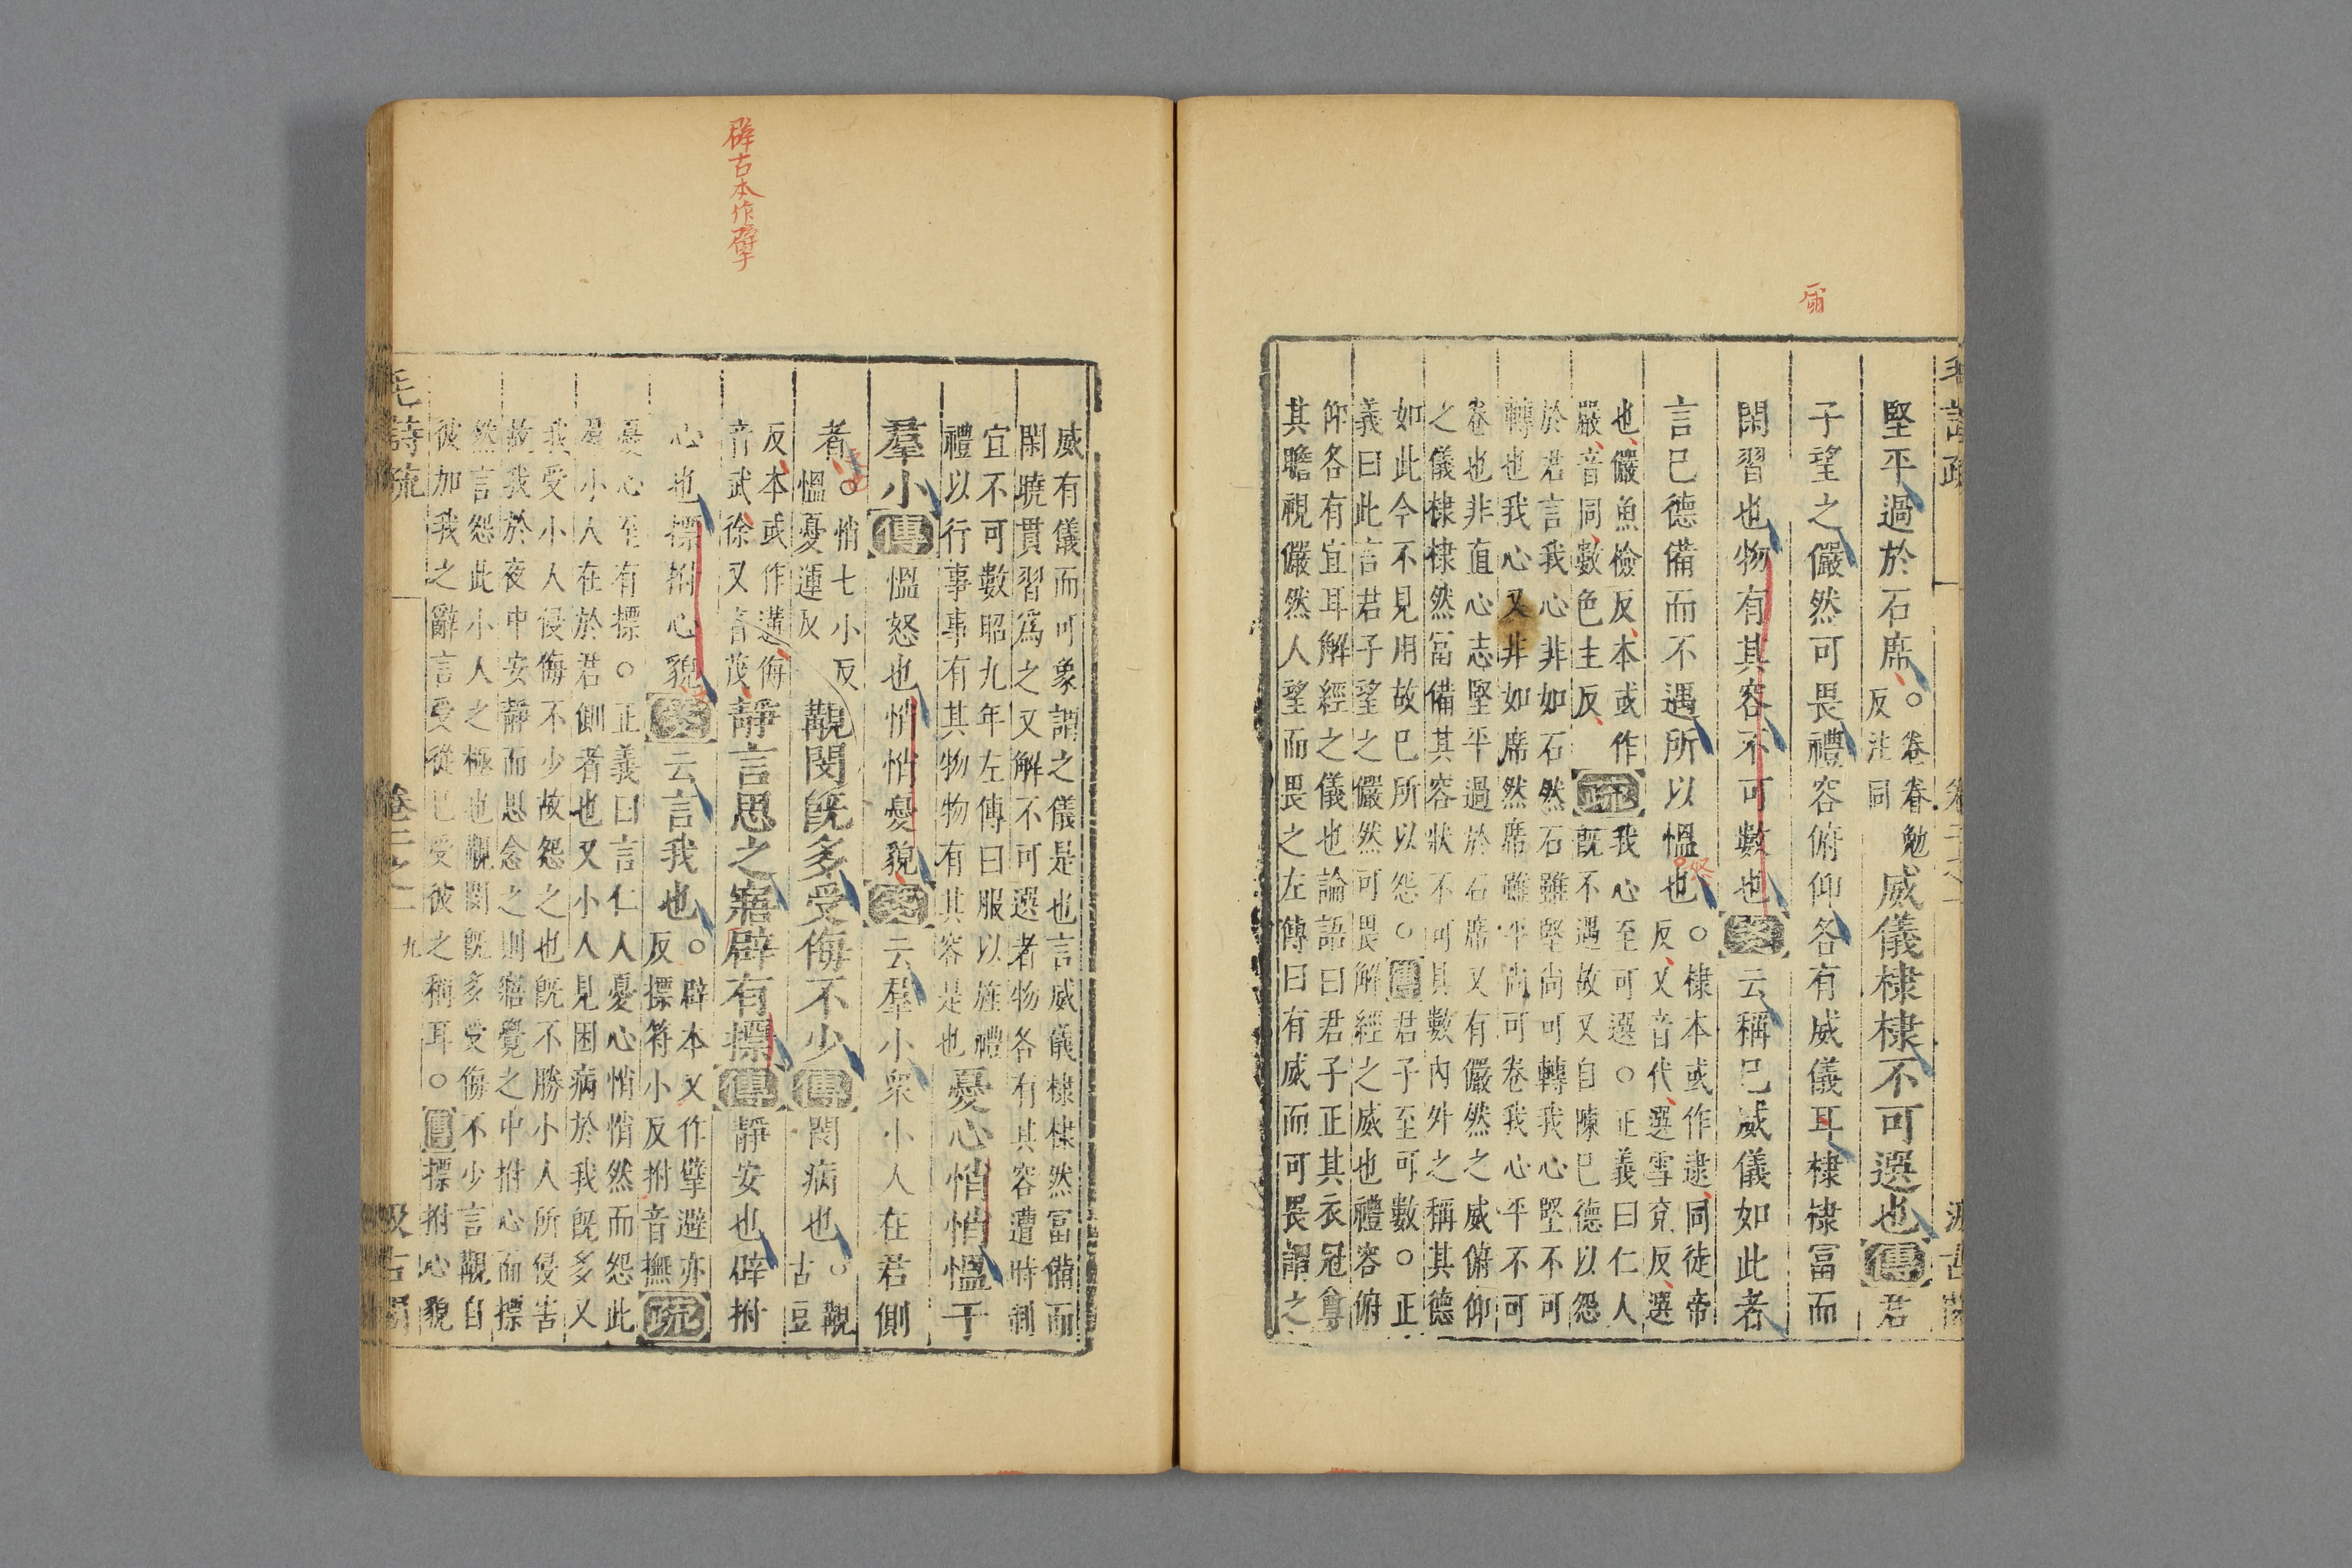 爾
毛詩疏 卷二之一 汲古閣
堅平過於石席○卷眷勉
反注同
威儀棣棣不可選也傳君
子望之儼然可畏禮容俯仰各有威儀耳棣棣富而
閑習也物有其容不可數也箋云稱己威儀如此者
言己德備而不遇所以慍也○棣本或作逮同徒帝
反又音代選雪兗反選
也儼魚檢反本或作
嚴音同數色主反
疏我心至可選○正義曰仁人
既不遇故又自陳己德以怨
於君言我心非如石然石雖堅尚可轉我心堅不可
轉也我心又非如席然席雖平尚可卷我心平不可
卷也非直心志堅平過於石席又有儼然之威俯仰
之儀棣棣然富備其容狀不可具數內外之稱其德
如此今不見用故己所以怨○傳君子至可數○正
義曰此言君子望之儼然可畏解經之威也禮容俯
仰各有宜耳解經之儀也論語曰君子正其衣冠尊
其瞻視儼然人望而畏之左傳曰有威而可畏謂之
辟古本作擘
威有儀而可象謂之儀是也言威儀棣棣然富備而
閑曉貫習爲之又解不可選者物各有其容遭時制
宜不可數昭九年左傳曰服以旌禮
禮以行事事有其物物有其容是也
憂心悄悄慍于
羣小傳慍怒也悄悄憂貌箋云羣小衆小人在君側
者○悄七小反
慍憂運反
覯閔既多受侮不少傳閔病也○覯
古豆
反本或作遘侮
音武徐又音茂
靜言思之寤辟有摽傳靜安也辟拊
心也摽拊心貌箋云言我也○辟本又作擘避亦
反摽符小反拊音撫疏
憂心至有摽○正義曰言仁人憂心悄悄然而怨此
羣小人在於君側者也又小人見困病於我既多又
我受小人侵侮不少故怨之也既不勝小人所侵害
故我於夜中安靜而思念之則寤覺之中拊心而摽
然言怨此小人之極也覯閔既多受侮不少言覯自
彼加我之辭言受從己受彼之稱耳○傳摽拊心貌
毛詩疏 卷二之一 九 汲古閣